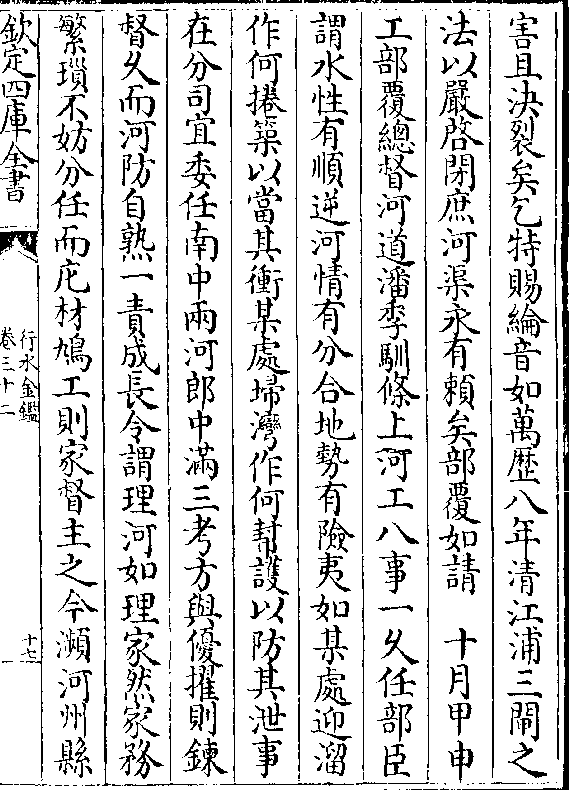 害且決裂矣乞特賜綸音如萬歴八年清江浦三閘之
法以嚴啓閉庶河渠永有賴矣部覆如請　十月甲申
工部覆總督河道潘季馴條上河工八事一久任部臣
謂水性有順逆河情有分合地勢有險夷如某處迎溜
作何捲築以當其衝某處埽灣作何幫護以防其泄事
在分司宜委任南中兩河郎中滿三考方與優擢則鍊
督久而河防自熟一責成長令謂理河如理家然家務
繁瑣不妨分任而庀材鳩工則家督主之今瀕河州縣
欽定四庫全書
行水金鑑
卷三十二
十七